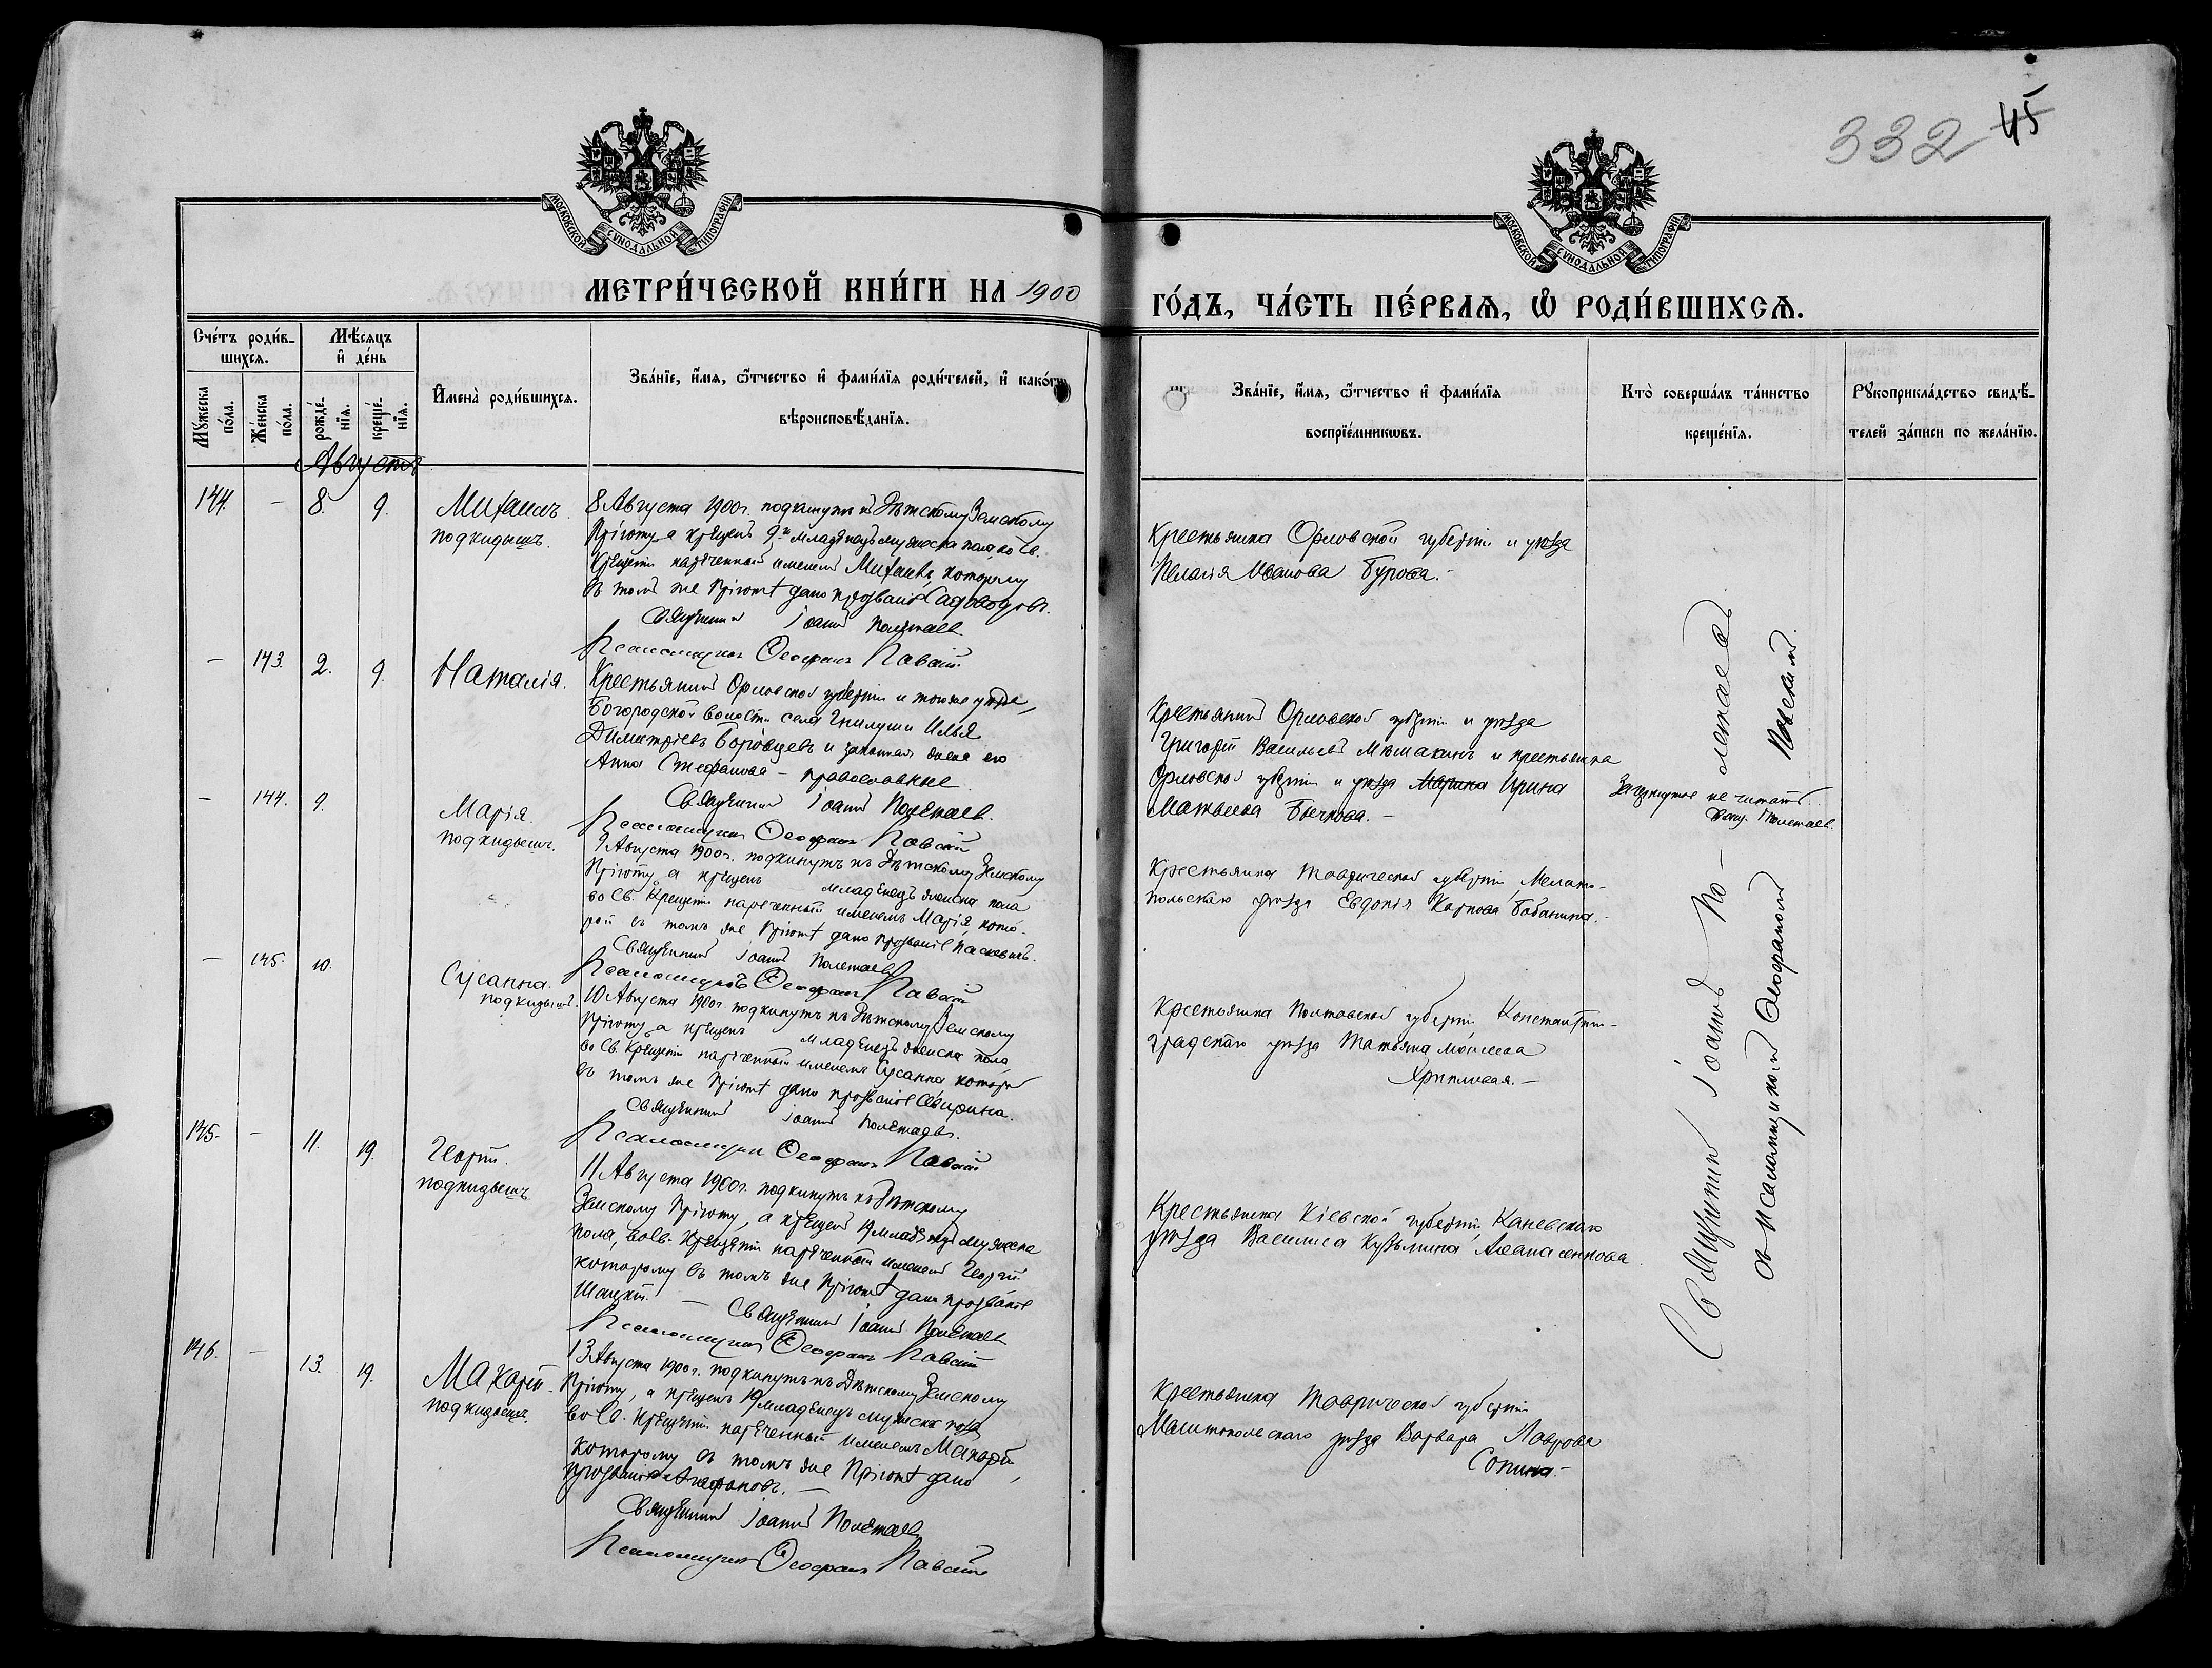 332 45
МОСКОВСКОЙ СѴНОДАЛЬНОЙ ТИПОГРАФІИ
МОСКОВСКОЙ СѴНОДАЛЬНОЙ ТИПОГРАФІИ
МЕТРИ́ЧЕСКОЙ КНИ́ГИ НА 1900
ГО́ДЪ, ЧА́СТЬ ПЕ́РВАѦ, Ѡ҆ РОДИ́ВШИХСѦ.
Сче́тъ роди́в-
шихсѧ.
Мѣ́сѧцъ
и҆ де́нь
Мꙋ́жеска
по́ла.
Же́нска
по́ла.
рожде́-
нїѧ.
креще́-
нїѧ.
И҆мена̀ роди́вшихсѧ.
Зва́нїе, и҆́мѧ, ѻ҆́тчество и҆ фами́лїѧ роди́телей, и҆ како́гѡ
вѣроисповѣ́данїѧ.
Зва́нїе, и҆́мѧ, ѻ҆́тчество и҆ фами́лїѧ
воспрїе́мникѡвъ.
Кто̀ соверша́лъ та́инство
креще́нїѧ.
Рꙋкоприкла́дство свидѣ́-
телей за́писи по жела́нїю.
Августъ
144. - 8. 9.
Михаилъ
подкидышъ.
8 Августа 1900г. подкинутъ къ Дѣтскому Земскому
Пріюту, а крещенъ 9го младенецъ мужеска пола, во Св.
Крещеніи нареченный именемъ Михаилъ, которому
въ томъ же Пріютѣ дано прозваніе Садоводовъ.
Священникъ Іоаннъ Полетаевъ
Псаломщикъ Ѳеофанъ
Крестьянка Орловской губерніи и уѣзда
Пелагія Иванова Бурова.-
- 143. 2. 9.
Наталія.
Крестьянинъ Орловской губерніи и того же уѣзда,
Богородской волости села Гнилуши Илья
Димитріевъ и законная жена его
Анна Стефанова - православные.
Священникъ Іоаннъ Полетаевъ.
Псаломщикъ Ѳеофанъ
Крестьянинъ Орловской губерніи и уѣзда
Григорій Васильевъ и крестьянка
Орловской губерніи и уѣзда Марина Ирина
Матвеева Бычкова.-
Зачеркнутое не читать.
Свящ. Полетаевъ.
- 144. 9.
Марія.
подкидышъ.
9 Августа 1900г. подкинутъ къ Дѣтскому Земскому
Пріюту, а крещенъ младенецъ женска пола
во Св. Крещеніи нареченный именемъ Марія, кото-
рой въ томъ же Пріютѣ дано прозваніе
Священникъ Іоаннъ Полетаевъ
Псаломщикъ Ѳеофанъ
Крестьянка Таврической губерніи, Мелито-
польскаго уѣзда Евдокія Карпова Бабанина.-
- 145. 10.
Сусанна.
подкидышъ.
10 Августа 1900г. подкинутъ къ Дѣтскому Земскому
Пріюту, а крещенъ младенецъ женска пола
во Св. Крещеніи нареченный именемъ Сусанна которой
въ томъ же Пріютѣ дано прозваніе
Священникъ Іоаннъ Полетаевъ.
Псаломщикъ Ѳеофанъ
Крестьянка Полтавской губерніи, Константино-
градскаго уѣзда Татьяна
Хрипливая.-
145. - 11. 19.
Георгій.
подкидышъ
11 Августа 1900г. подкинутъ къ Дѣтскому
Земскому Пріюту, а крещенъ 19 младенецъ мужеска
пола, во Св. Крещеніи нареченный именемъ Георгій
которому въ томъ же Пріютѣ дано прозваніе
Священникъ Іоаннъ Полетаевъ
Псаломщикъ Ѳеофанъ
Крестьянка Кіевской губерніи, Каневскаго
уѣзда Василиса Кузьмина
146. - 13. 19.
Макарій.
подкидышъ.
13 Августа 1900г. подкинутъ къ Дѣтскому Земскому
Пріюту, а крещенъ 19 младенецъ мужеска пола
во Св. Крещеніи нареченный именемъ Макарій,
которому въ томъ же Пріютѣ дано
прозваніе Агафоновъ.-
Священникъ Іоаннъ Полетаевъ
Псаломщикъ Ѳеофанъ
Крестьянка Таврической губерніи
Мелитопольскаго уѣзда Варвара Лаврова
Сопина.-
Священникъ Іоаннъ По-летаевъ
съ псаломщикомъ Ѳеофаномъ